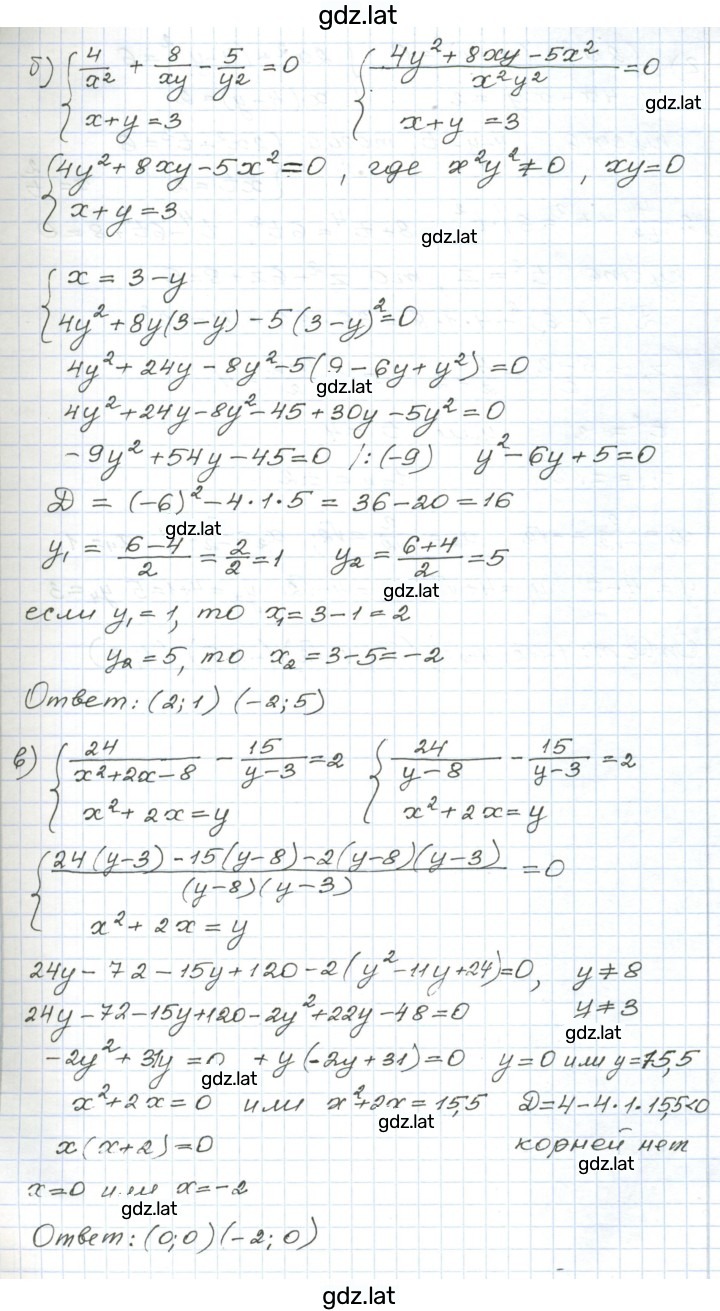 gdz.lat
б) { 4/x² + 8/xy − 5/y² = 0 { (4y² + 8xy − 5x²)/x²y² = 0
x+y = 3 x+y = 3
gdz.lat
{ 4y² + 8xy − 5x² = 0, где x²y² ≠ 0, xy=0
x+y = 3
gdz.lat
{ x = 3−y
4y² + 8y(3−y) − 5(3−y)² = 0
4y² + 24y − 8y² − 5(9 − 6y + y²) = 0
gdz.lat
4y² + 24y − 8y² − 45 + 30y − 5y² = 0
−9y² + 54y − 45 = 0 /:(−9) y² − 6y + 5 = 0
D = (−6)² − 4·1·5 = 36−20 = 16
gdz.lat
y₁ = (6−4)/2 = 2/2 = 1 y₂ = (6+4)/2 = 5
gdz.lat
если y₁ = 1, то x₁ = 3−1 = 2
y₂ = 5, то x₂ = 3−5 = −2
Ответ: (2; 1) (−2; 5)
в) { 24/(x²+2x−8) − 15/(y−3) = 2 { 24/(y−8) − 15/(y−3) = 2
x² + 2x = y x² + 2x = y
{ (24(y−3) − 15(y−8) − 2(y−8)(y−3))/((y−8)(y−3)) = 0
x² + 2x = y
24y − 72 − 15y + 120 − 2(y² − 11y + 24) = 0, y ≠ 8
24y − 72 − 15y + 120 − 2y² + 22y − 48 = 0 y ≠ 3
gdz.lat
−2y² + 31y = 0 + y(−2y + 31) = 0 y = 0 или y = 15,5
gdz.lat
x² + 2x = 0 или x² + 2x = 15,5 D = 4 − 4·1·15,5 < 0
gdz.lat
x(x+2) = 0 корней нет
gdz.lat
x = 0 или x = −2
gdz.lat
Ответ: (0; 0) (−2; 0)
gdz.lat